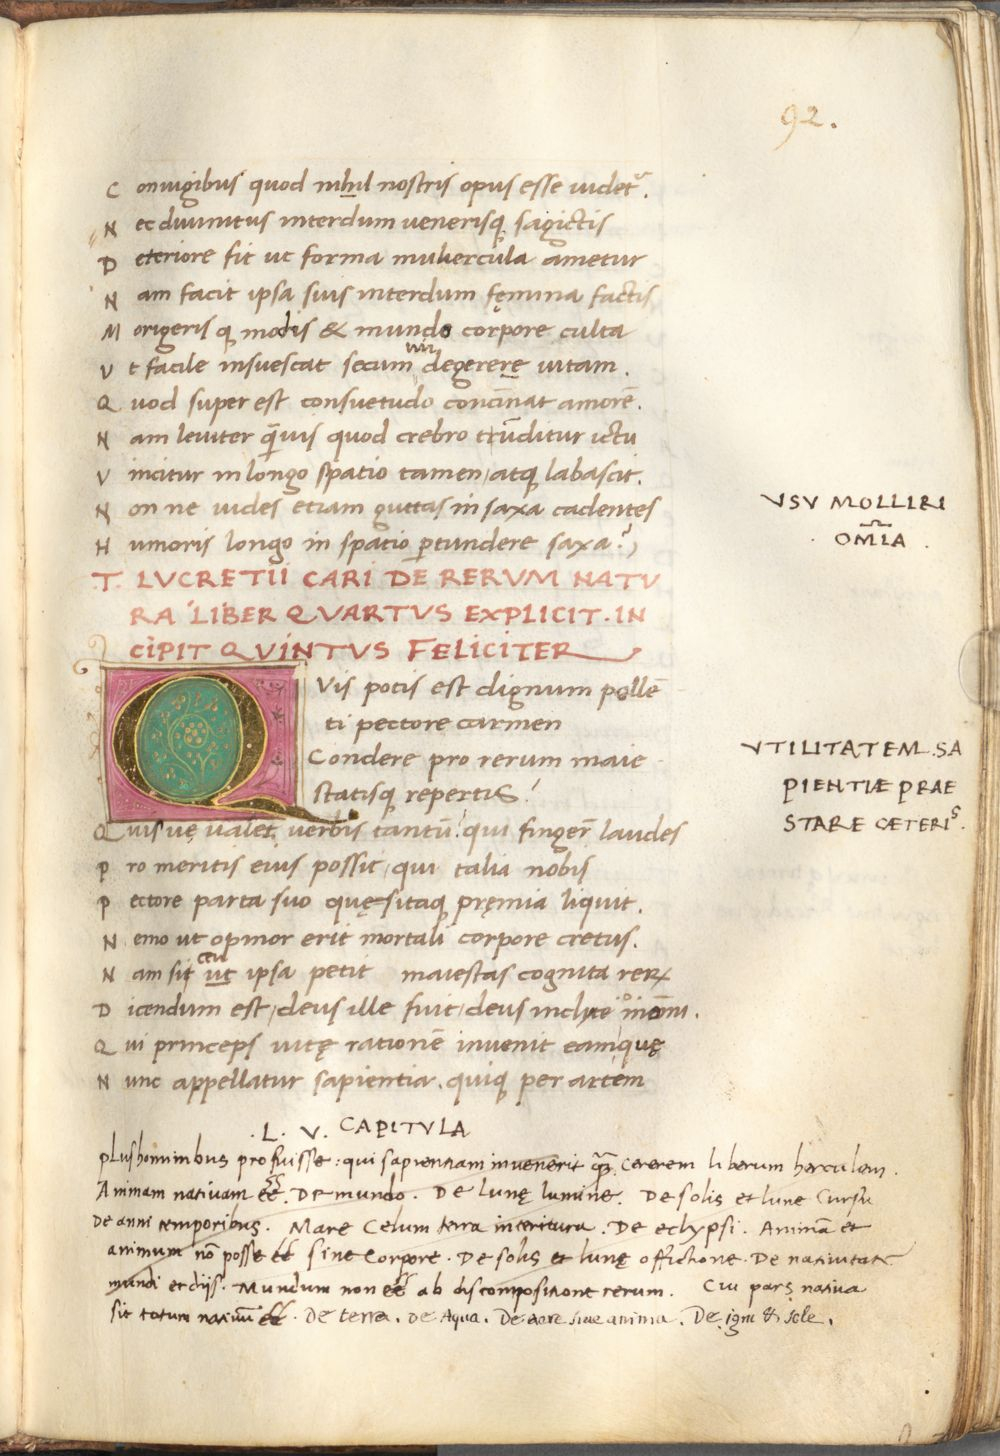 92.
C oniugibus quod nihil nostris opus esse uidet᷑.
N ec diuinitus interdum venerisq; sagictis
D eteriore fit ut forma muliercula ametur
N am facit ipsa suis interdum fęmina factis
M origeris q; modis & mundo corpore culta
V t facile insuescat secum degerere uitam.
uir
Q uod super est consuetudo concinnat amorē.
N am leuiter quāuis quod crebro tūnditur ictu
V incitur in longo spatio tamen, atq; labascit.
N on ne uides etiam guttas in saxa cadentes
H umoris longo in spatio ptundere saxa?
VSV MOLLIRI
OMĪA.
T. LVCRETII CARI DE RERVM NATV
RA LIBER QVARTVS EXPLICIT. IN
CIPIT QVINTVS FELICITER
Q Vis potis est dignum pollē
ti pectore carmen
Condere pro rerum maie
statisq; repertis?
VTILITATEM. SA
PIENTIÆ PRAE
STARE CÆTERIS.
Q uis uę ualet uerbis tantū? qui finger̄ laudes
P ro meritis eius possit, qui talia nobis
P ectore parta suo quęsitaq; pręmia liquit.
N emo ut opinor erit mortali corpore cretus.
ceu
N am sit ut ipsa petit maiestas cognita rerꝝ
D icendum est, deus ille fuit, deus inclyte
Q ui princeps uitę rationē inuenit eam, quę
N unc appellatur sapientia. quiq; per artem
.L. V. CAPITVLA
plus hominibus profuisse: qui sapientiam invenerit quā Cererem liberum herculem.
Animam nativam eē. De mundo. De lunę lumine. De solis et lunę Cursu
De anni temporibus. Mare Celum terra interitura. De eclypsi. Animā et
animum nō posse eē sine Corpore. De solis et lunę offictione. De nativitate
mundi et diis. Mundum non eē ab dis compositione rerum. Cui pars nativa
sit totum nativū eē. De terra. De Aqua. De aere siue anima. De igni & sole.